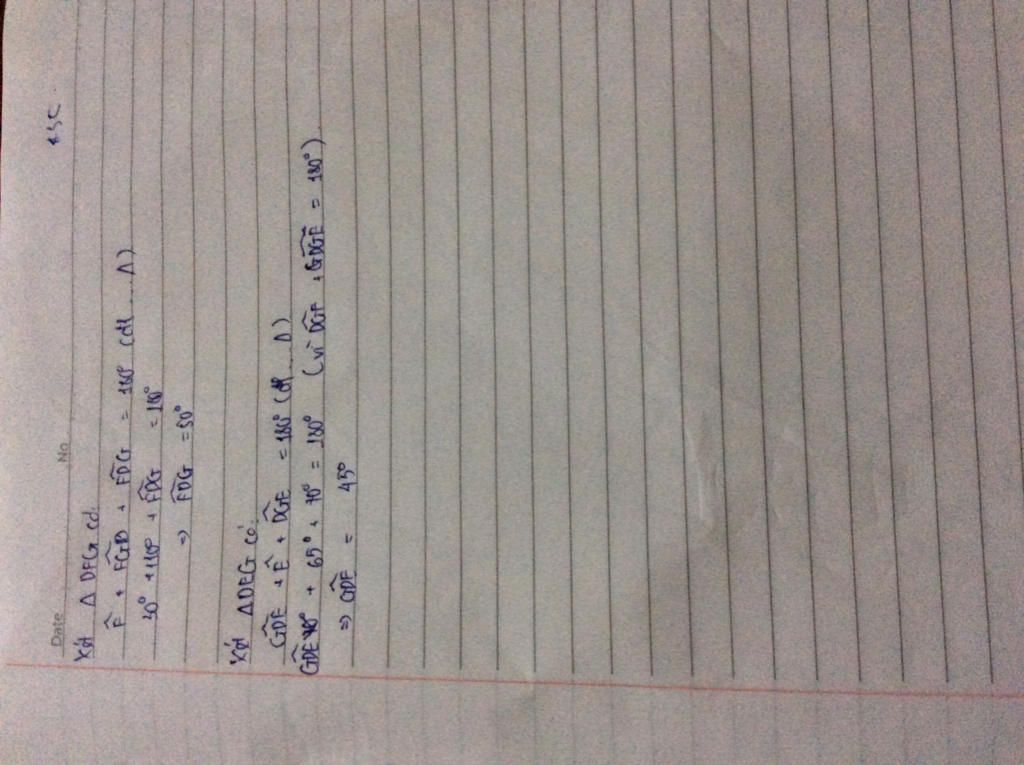 Date No
Xét Δ DFG có:
F̂ + FGD + FDG = 180° (đl ... Δ)
20° + 110° + FDG = 180°
=> FDG = 50°
Xét ΔDEG có:
GDE + Ê + DGE = 180° (đl ... Δ)
GDE + 65° + 70° = 180° (vì DGF + GDGE = 180°)
=> GDE = 45°